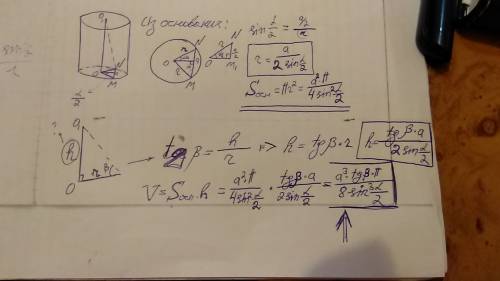 Из основания:
sin α/2 = a/2 / r
r = a / 2 sin α/2
Sосн = πr² = a²·π / 4 sin² α/2
α/2 =
tg β = h/r => h = tg β · r
h = tg β · a / 2 sin α/2
V = Sосн · h = a²·π / 4 sin² α/2 · tg β · a / 2 sin α/2 = a³ · tg β · π / 8 sin³ α/2